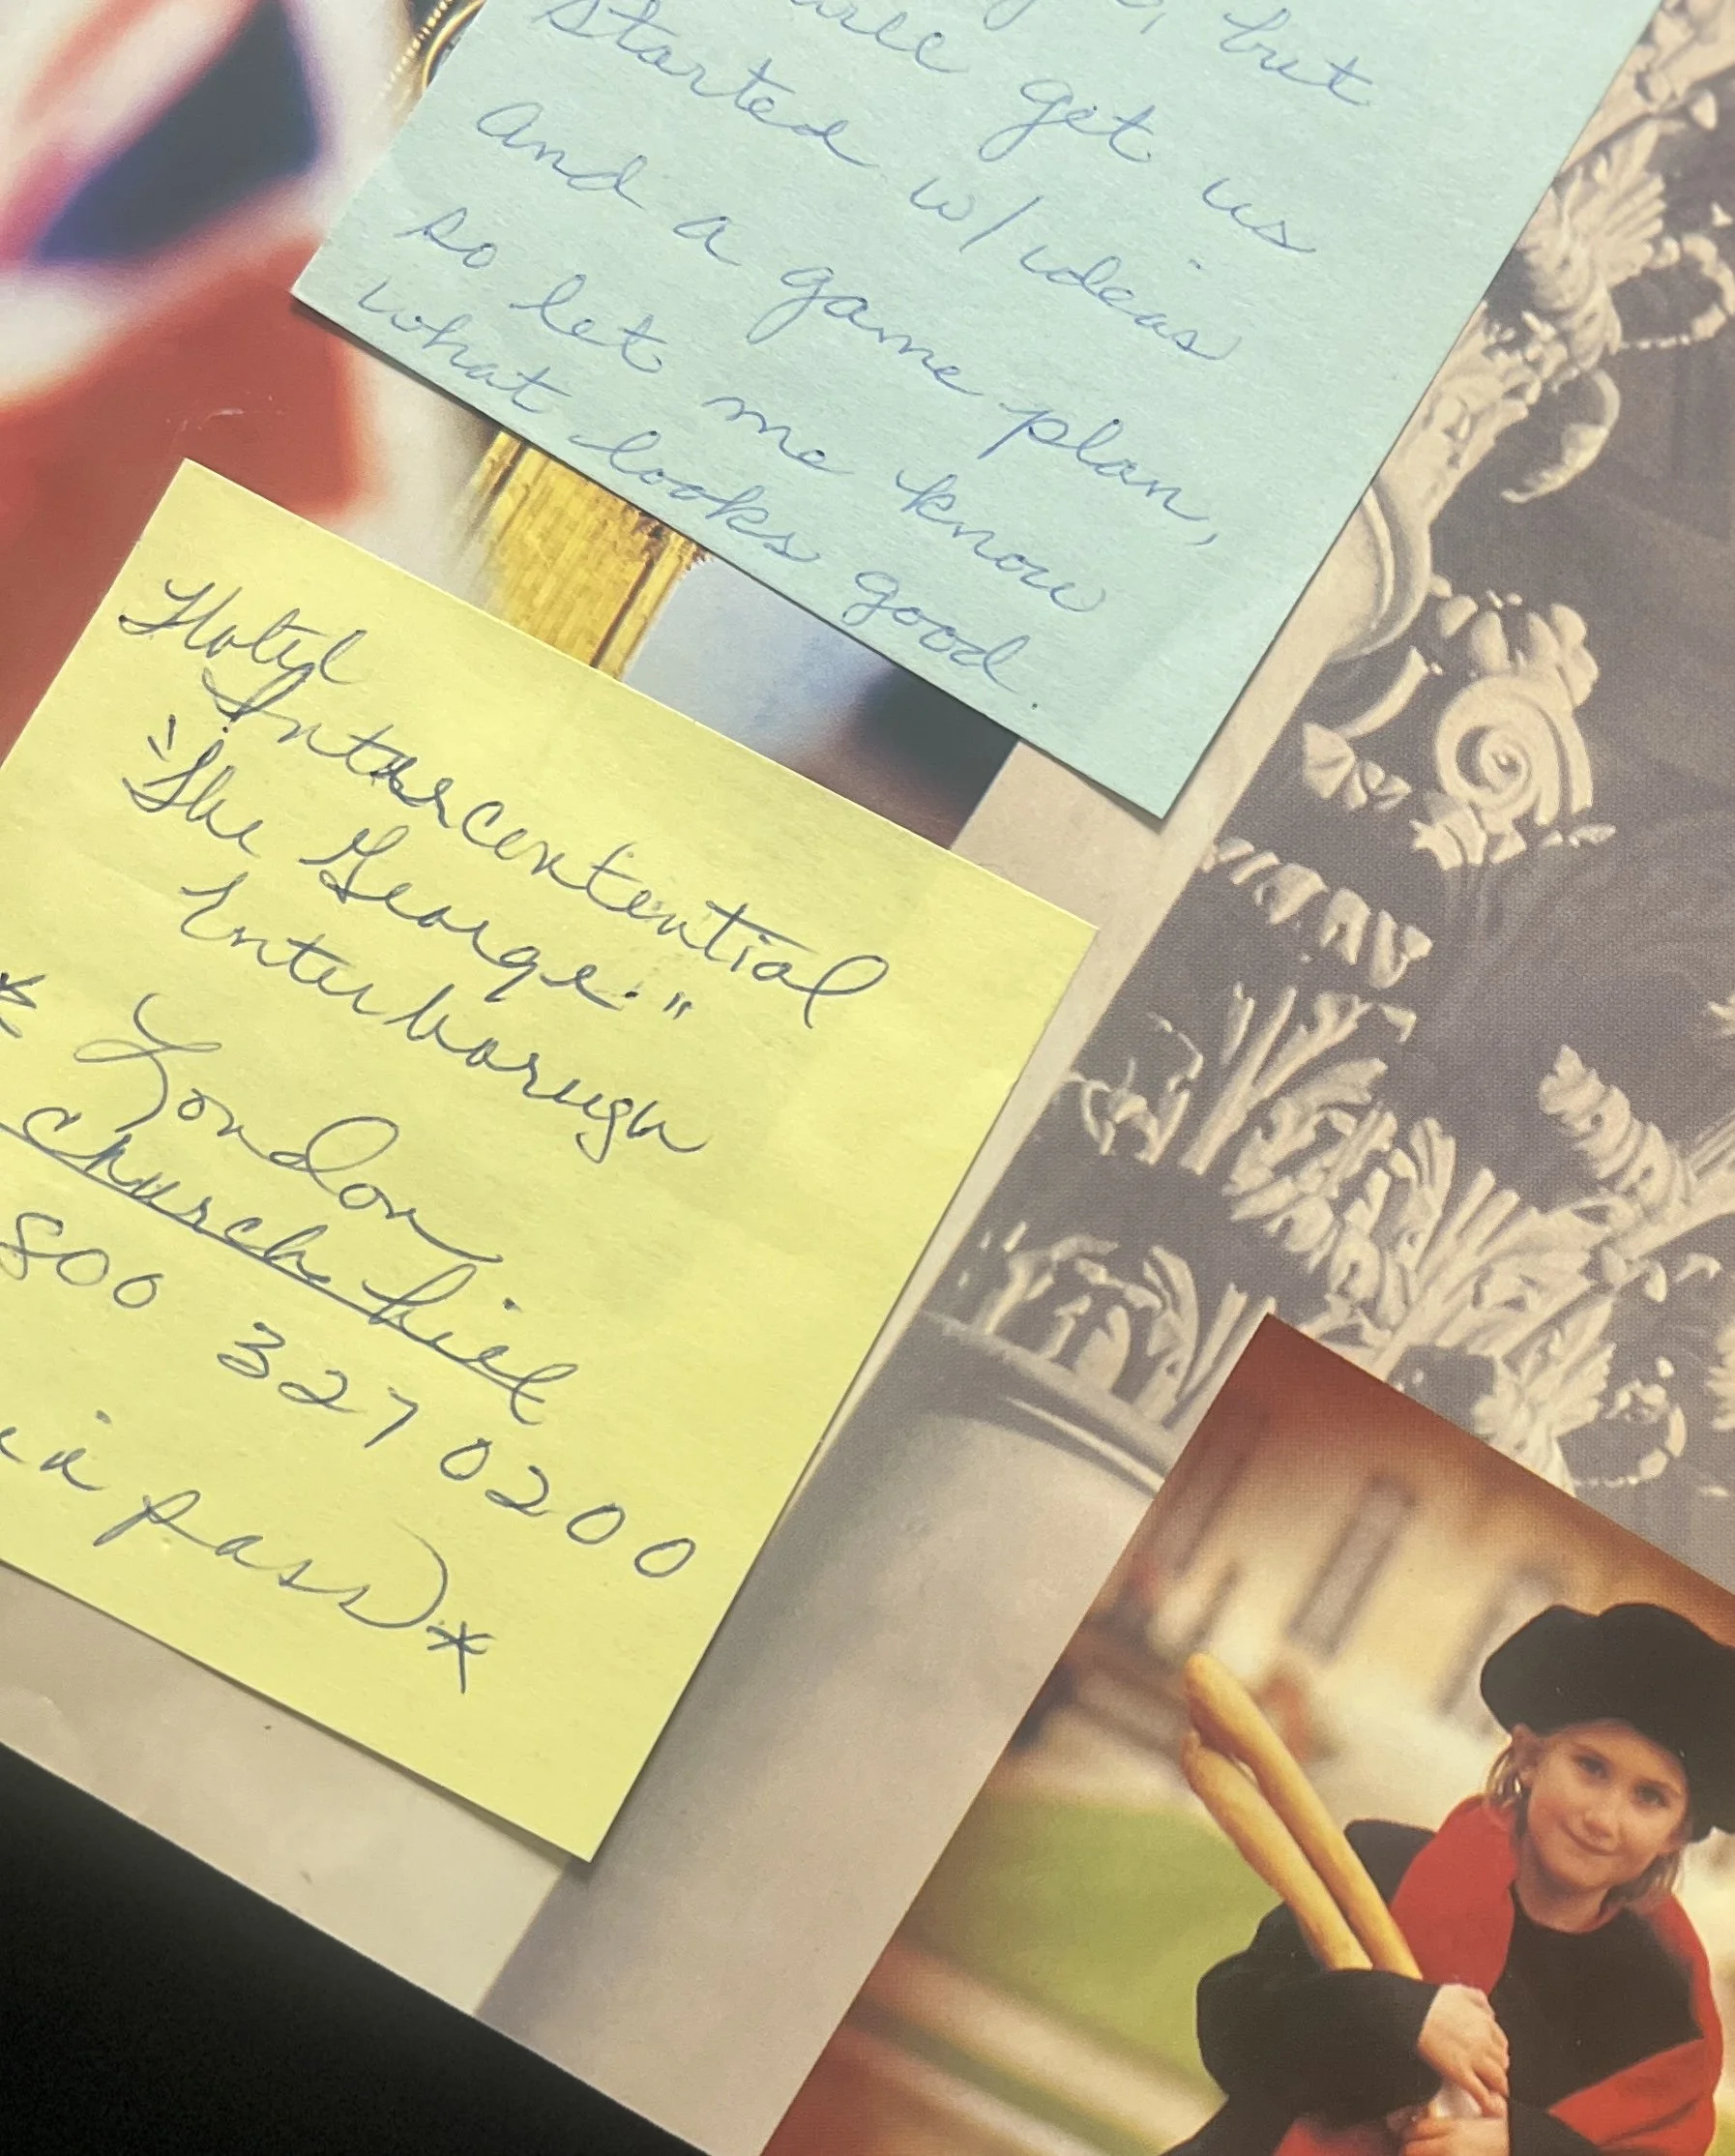 but
get us
started w/ ideas
and a game plan,
so let me know
what looks good.
Hotel
Intercentential
"The George."
Enterborough
* London
church hill
800 327 0200
pass) *